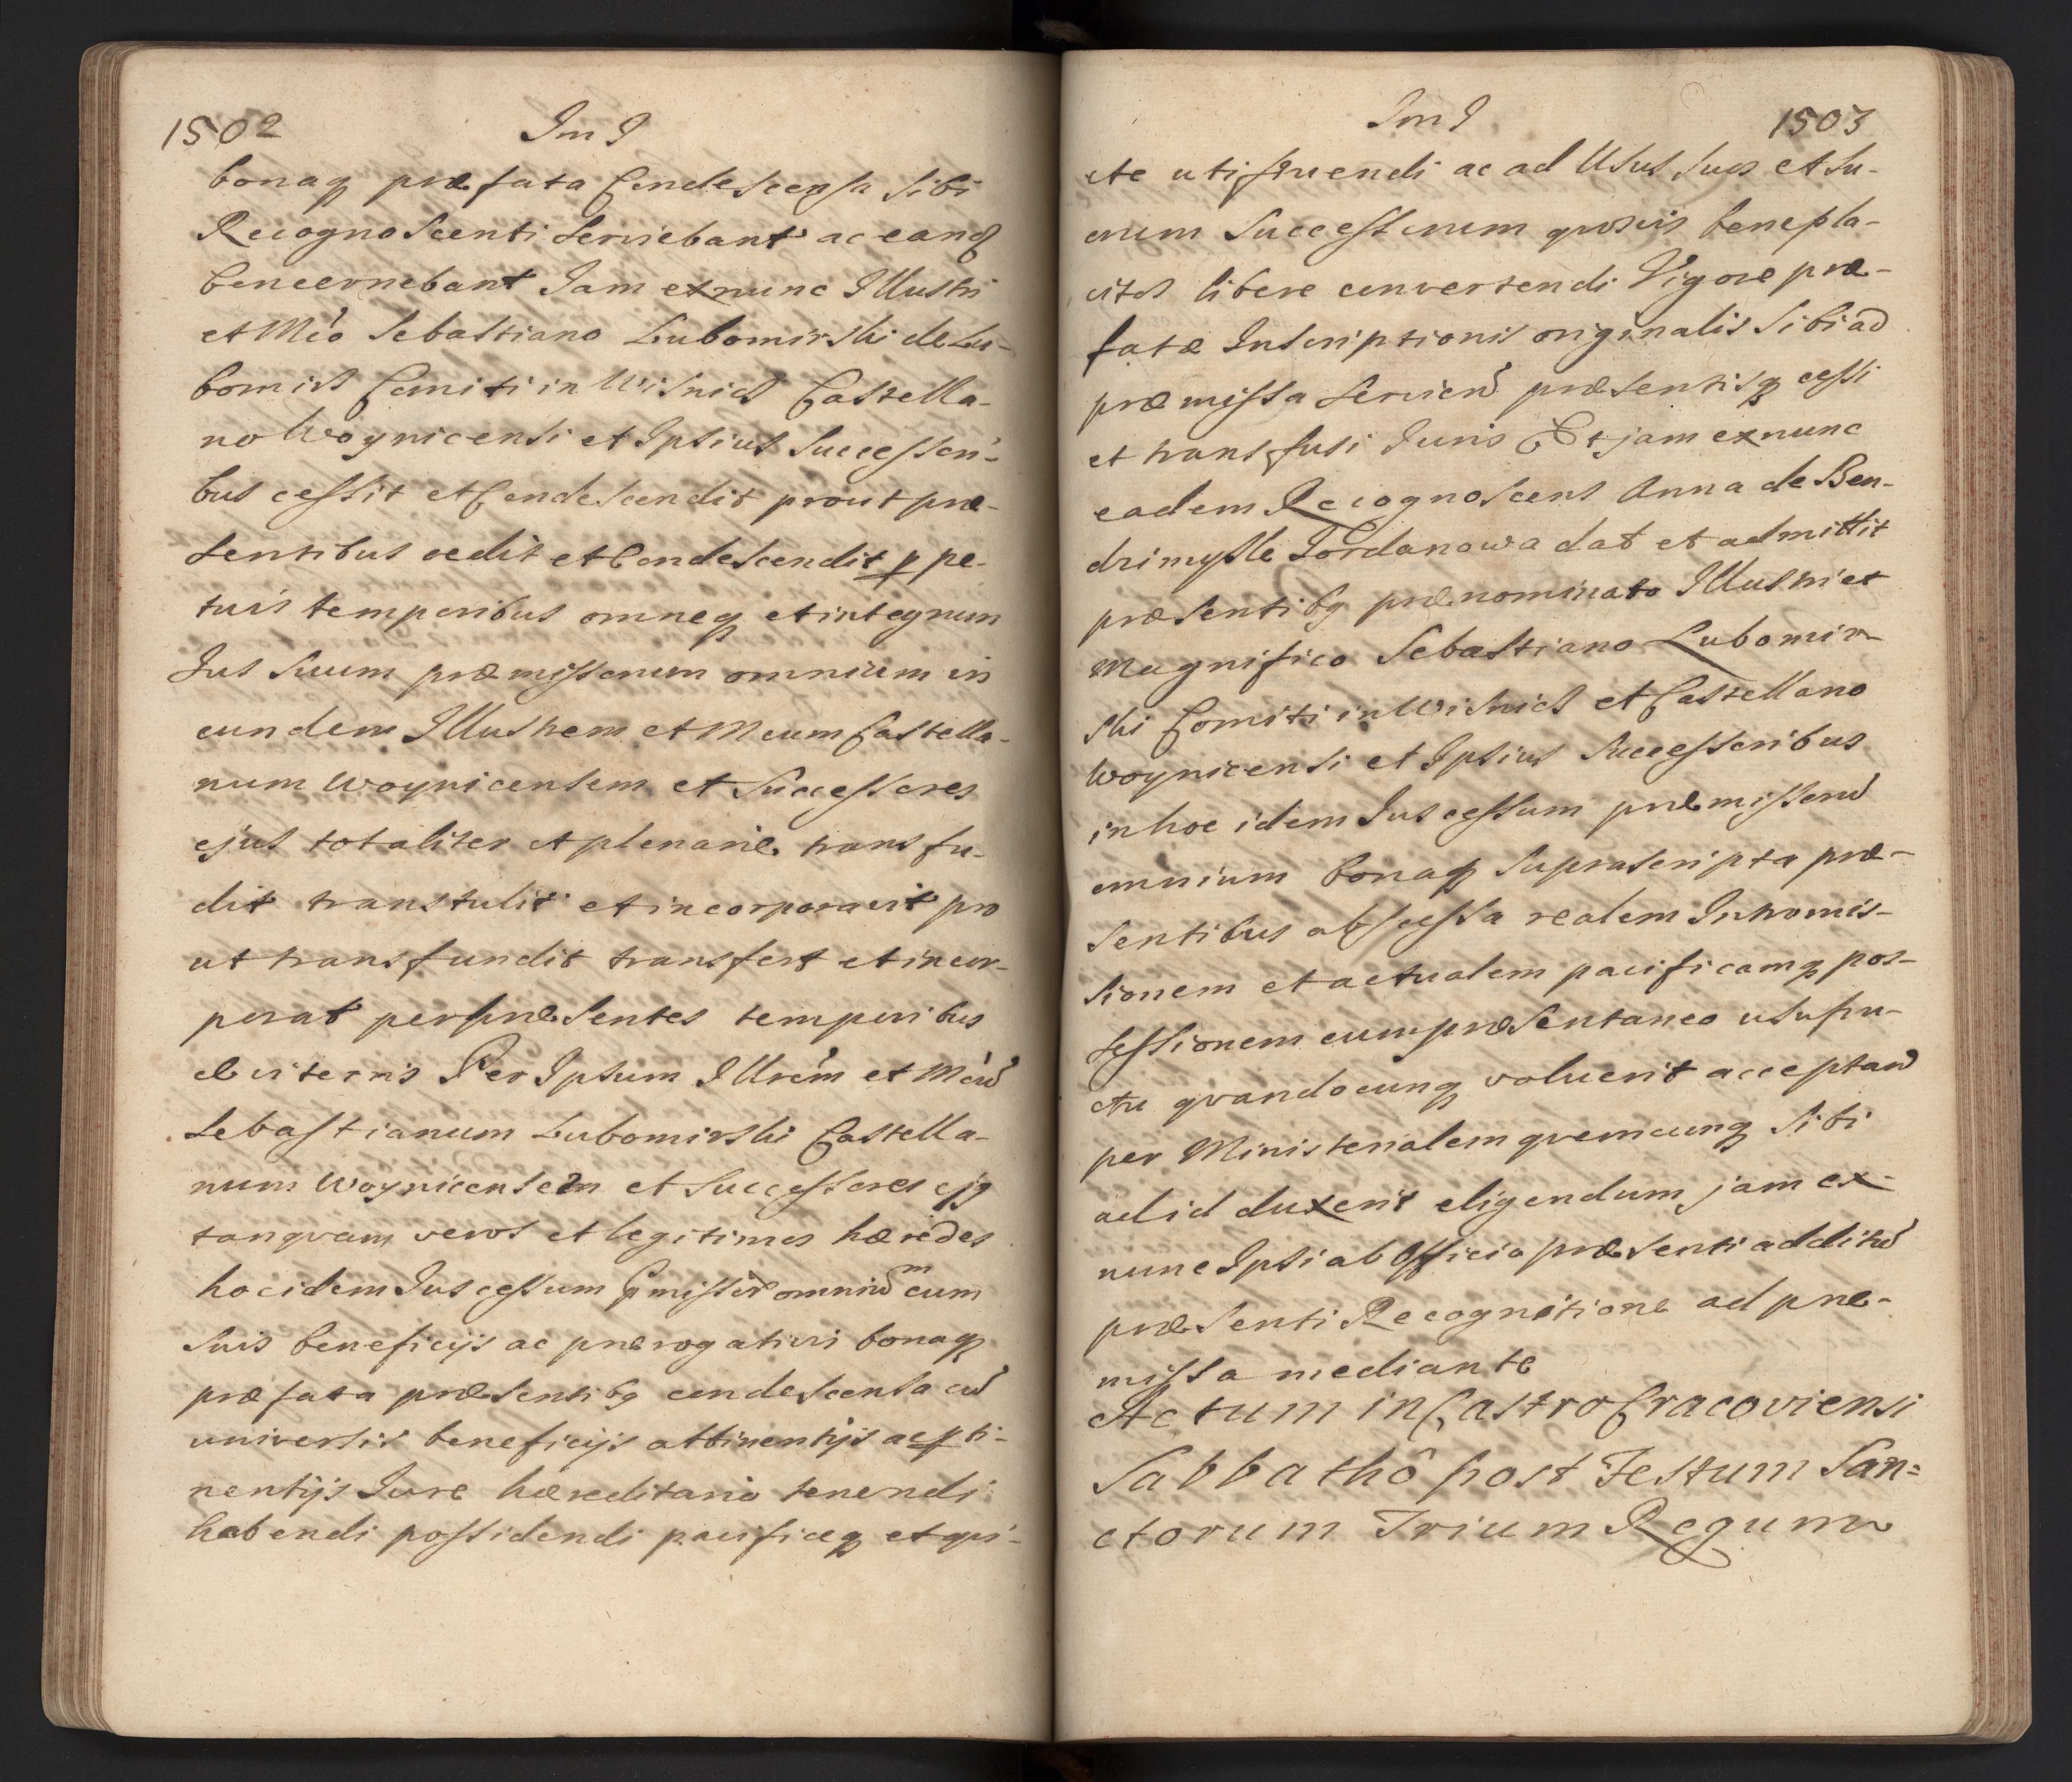 1502
Im I
bonaq præfata Condescensa Sibi
Recognoscenti Serviebant ac eanq
Concernebant Jam exnunc Illustri
et Mco Sebastiano Lubomirski de Lu-
bomirz Comiti in Wisnicz Castella-
no Woynicensi et Ipsius Successori-
bus cessit et Condescendit prout præ-
sentibus cedit et Condescendit p pe-
tuis temporibus omneq et integrum
Jus Suum præmissorum omnium in
eundem Illustrem et Mcum Castella-
num Woynicensem et Successores
ejus totaliter et plenarie transfu-
dit transtulit et incorporavit pro
ut transfundit transfert et incor-
porat per præsentes temporibus
æviternis Per Ipsum Illrem et Mcu
Sebastianum Lubomirski Castella-
num Woynicensem et Successores ejq
tanqvam veros et legitimos hæredes
hoc idem Jus cessum pmissor omniu cum
suis beneficijs ac prærogativis bonaq
præfata præsentibq condescensa cu
universis beneficijs attinentijs ac pti-
nentijs Jure hæreditario tenendi
habendi possidendi pacificeq et qvi-
Im I
1503
ete utifruendi ac ad Usus suos et Su-
orum Successorum qvosvis benepla-
citos libere convertendi Vigore præ-
fatæ Inscriptionis originalis Sibi ad
præmissa Servien præsentisq cessi
et transfusi Juris Et jam exnunc
eadem Recognoscens Anna de Ben-
drimysle Jordanowa dat et admittit
præsentibq prænominato Illustri et
Magnifico Sebastiano Lubomir-
ski Comiti in Wisnicz et Castellano
Woynicensi et Ipsius Successoribus
in hoc idem Jus cessum præmissoru
omnium bonaq suprascripta præ-
sentibus abscessa realem Intromis-
sionem et actualem pacificamq pos-
sessionem cum præsentaneo usufru-
ctu qvandocunq voluerit acceptand
per Ministerialem qvemcunq Sibi
ad id duxerit eligendum jam ex-
nunc Ipsi ab Officio præsenti additu
præsenti Recognitione ad præ-
missa mediante
Actum in Castro Cracoviensi
Sabbathô post Festum San=
ctorum Trium Regum